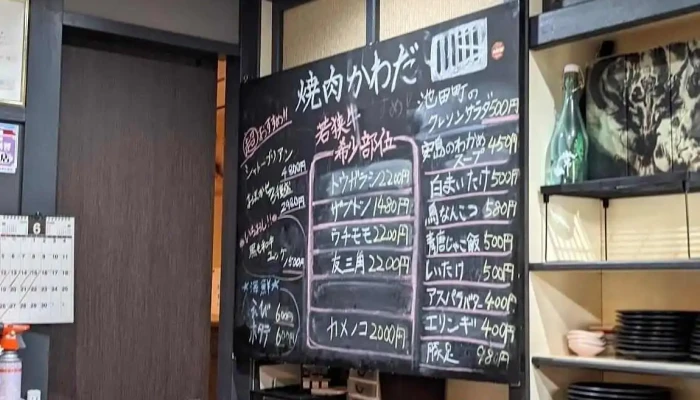 焼肉かわだ
シャトーブリアン
4800円
2980円
いちおし!!
黒毛和牛
ユッケ 1500円
海鮮
えび 600円
ホタテ 600円
若狭牛
希少部位
トウガラシ 2200円
ザブトン 1480円
ウチモモ 2200円
友三角 2200円
カメノコ 2000円
池田町の
クレソンサラダ 500円
安島のわかめ
スープ 450円
白まいたけ 500円
鳥なんこつ 580円
青唐じゃこ飯 500円
しいたけ 500円
アスパラバター 400円
エリンギ 400円
豚足 980円
6